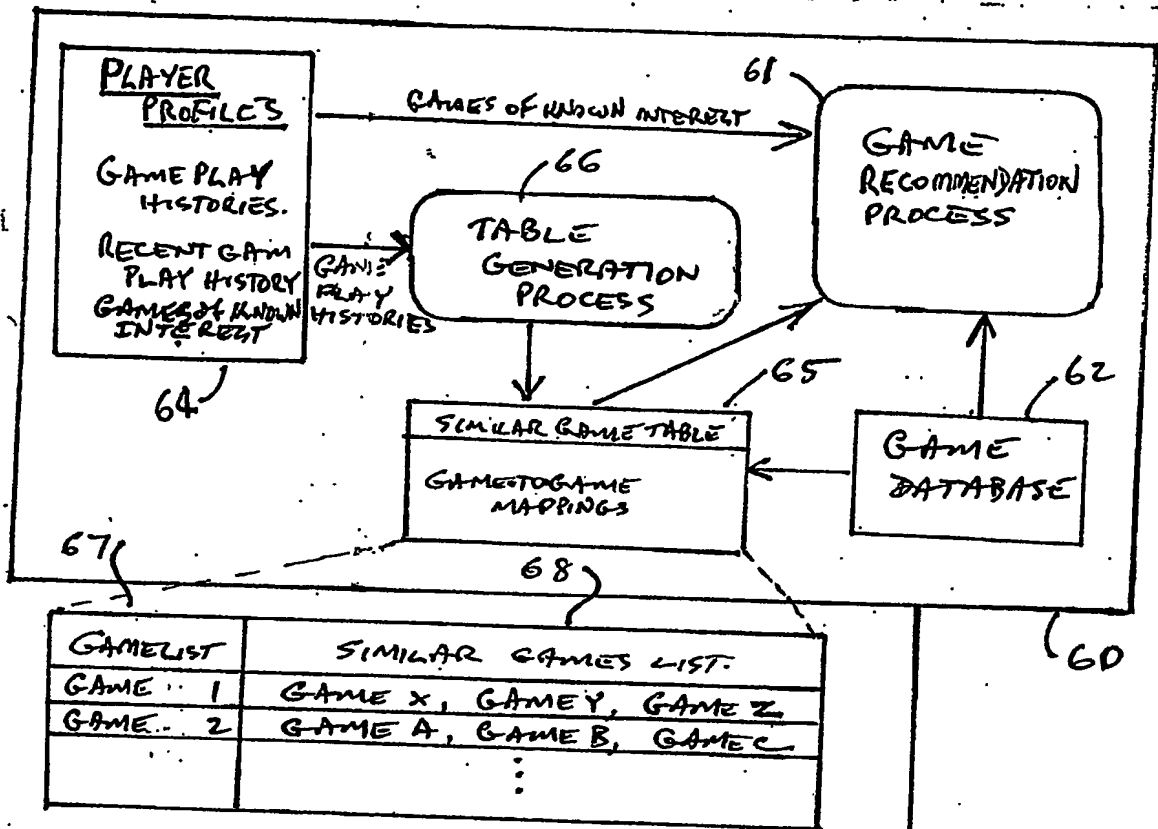 PLAYER
PROFILES
GAME PLAY
HISTORIES.
RECENT GAM
PLAY HISTORY
GAMES of KNOWN
INTEREST
64
GAMES OF KNOWN INTEREST
GAME
PLAY
HISTORIES
66
TABLE
GENERATION
PROCESS
61
GAME
RECOMMENDATION
PROCESS
65
SIMILAR GAME TABLE
GAME TO GAME
MAPPINGS
62
GAME
DATABASE
60
67
68
GAME LIST SIMILAR GAMES LIST.
GAME 1 GAME X, GAME Y, GAME Z
GAME 2 GAME A, GAME B, GAME C